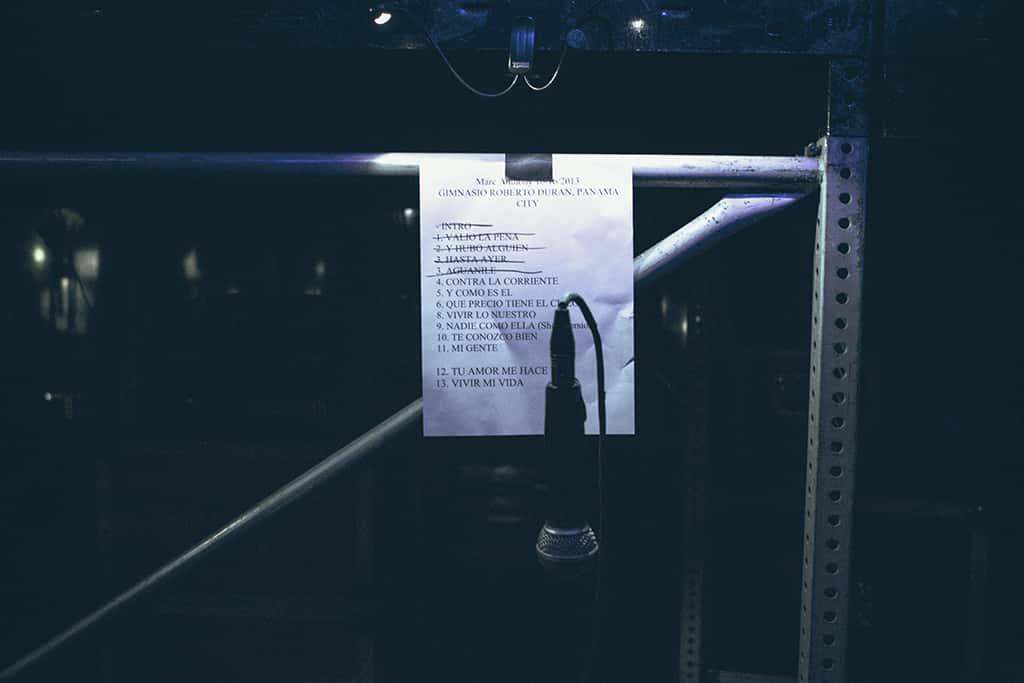 Marc 2013
GIMNASIO ROBERTO DURAN, PANAMA
CITY
INTRO
1. VALIO LA PENA
2. Y HUBO ALGUIEN
3. HASTA AYER
3. AGUANILE
4. CONTRA LA CORRIENTE
5. Y COMO ES EL
6. QUE PRECIO TIENE EL
8. VIVIR LO NUESTRO
9. NADIE COMO ELLA
10. TE CONOZCO BIEN
11. MI GENTE
12. TU AMOR ME HACE
13. VIVIR MI VIDA